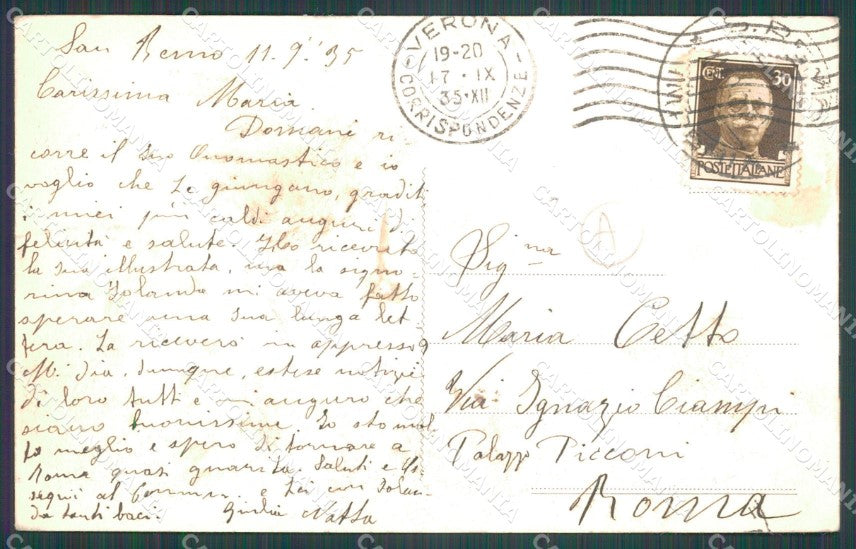 San Remo 11.9.'35
Carissima Maria.
Domani ri
corre il Suo Onomastico e io
voglio che Le giungano, gradit
i miei più caldi auguri di
felicità e salute. Ho ricevuto
la sua illustrata, ma la signo-
rina Iolanda mi aveva fatto
sperare una sua lunga let
tera. La riceverò in appresso?
Mi dia, dunque, estese notizie
di loro tutti e mi auguro che
siano buonissime. Io sto mol
to meglio e spero di tornare a
Roma quasi guarita. Saluti e os
sequi al Comm. e Lei con Iolan-
da tanti baci. Giulia Natta
VERONA
19-20
17·IX
35·XII
CORRISPONDENZE
CENT. 30
POSTE ITALIANE
A
Sig.na
Maria Cetto
Via Ignazio Ciampi
Palazz Picconi
Roma
CARTOLINOMANIA